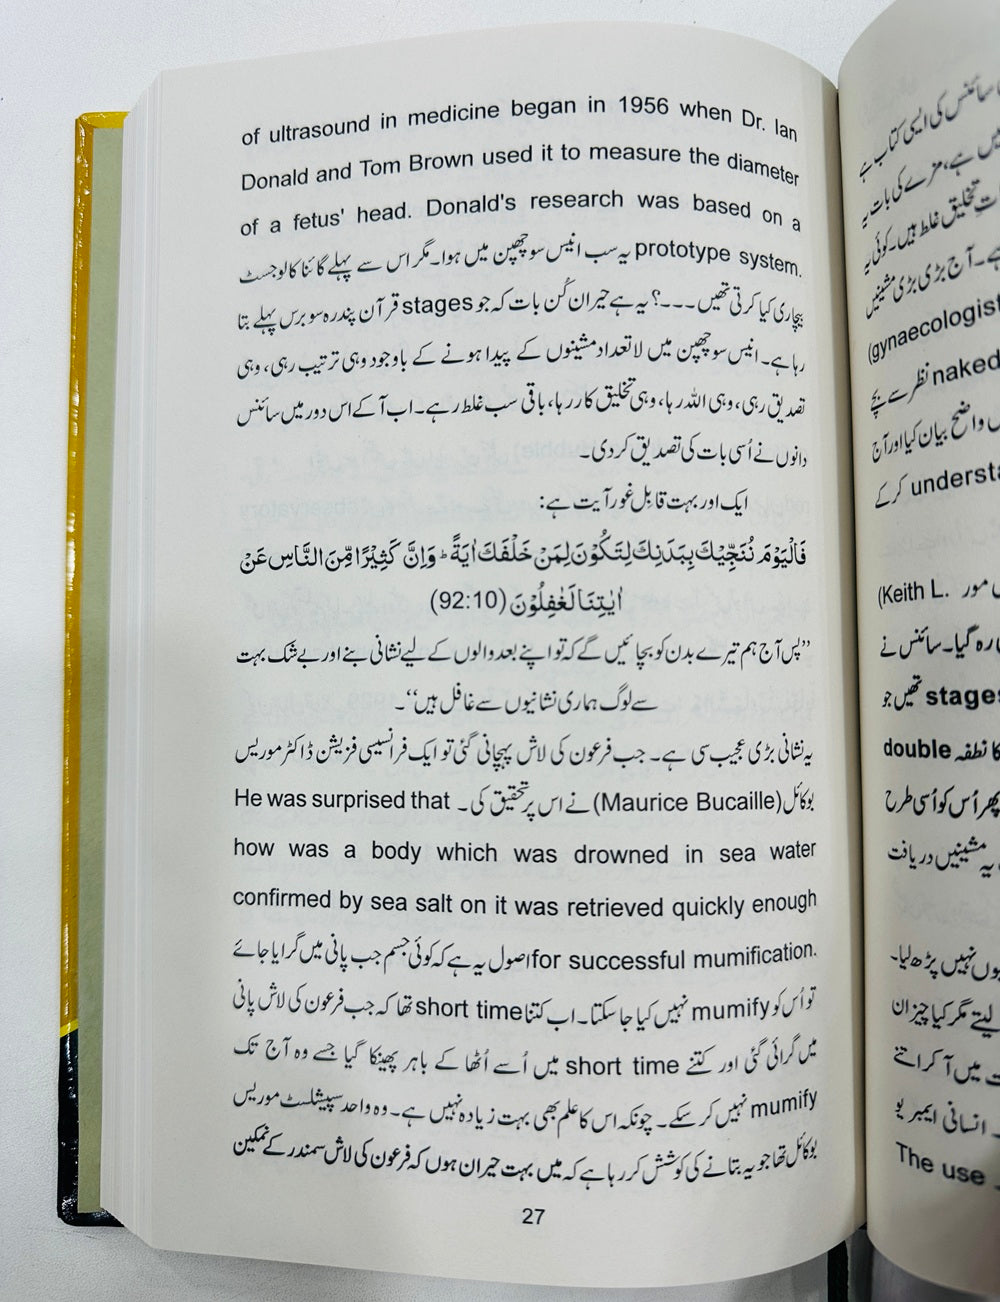 of ultrasound in medicine began in 1956 when Dr. Ian
Donald and Tom Brown used it to measure the diameter
of a fetus' head. Donald's research was based on a
prototype system. یہ سب انیس سو چھپن میں ہوا۔ مگر اس سے پہلے گائنا کالوجسٹ
بیچاری کیا کرتی تھیں۔۔۔؟ یہ ہے حیران کُن بات کہ جو stages قرآن پندرہ سو برس پہلے بتا
رہا ہے۔ انیس سو چھپن میں لاتعداد مشینوں کے پیدا ہونے کے باوجود وہی ترتیب رہی، وہی
تصدیق رہی، وہی اللہ رہا، وہی تخلیق کار رہا، باقی سب غلط رہے۔ اب آ کے اس دور میں سائنس
دانوں نے اُسی بات کی تصدیق کر دی۔
ایک اور بہت قابلِ غور آیت ہے:
فَالْيَوْمَ نُنَجِّيْكَ بِبَدَنِكَ لِتَكُوْنَ لِمَنْ خَلْفَكَ اٰيَةً ؕ وَاِنَّ كَثِيْرًا مِّنَ النَّاسِ عَنْ
اٰيٰتِنَا لَغٰفِلُوْنَ (92:10)
”پس آج ہم تیرے بدن کو بچائیں گے کہ تو اپنے بعد والوں کے لیے نشانی بنے اور بے شک بہت
سے لوگ ہماری نشانیوں سے غافل ہیں“۔
یہ نشانی بڑی عجیب سی ہے۔ جب فرعون کی لاش پہچانی گئی تو ایک فرانسیسی فزیشن ڈاکٹر موریس
بوکائل (Maurice Bucaille) نے اس پر تحقیق کی۔ He was surprised that
how was a body which was drowned in sea water
confirmed by sea salt on it was retrieved quickly enough
for successful mumification. اصول یہ ہے کہ کوئی جسم جب پانی میں گرایا جائے
تو اُس کو mumify نہیں کیا جا سکتا۔ اب کتنا short time تھا کہ جب فرعون کی لاش پانی
میں گرائی گئی اور کتنے short time میں اُسے اُٹھا کے باہر پھینکا گیا جسے وہ آج تک
mumify نہیں کر سکے۔ چونکہ اس کا علم بھی بہت زیادہ نہیں ہے۔ وہ واحد سپیشلسٹ موریس
بوکائل تھا جو یہ بتانے کی کوشش کر رہا ہے کہ میں بہت حیران ہوں کہ فرعون کی لاش سمندر کے نمکین
27
سائنس کی ایسی کتاب ہے
ہے، مزے کی بات یہ
تخلیق غلط ہیں۔ کوئی یہ
آج بڑی بڑی مشینیں
(gynaecologist
naked نظر سے بچے
واضح بیان کیا اور آج
understa کر کے
مور (Keith L.
رہ گیا۔ سائنس نے
stages تھیں جو
کا نطفہ double
پھر اُس کو اُسی طرح
یہ مشینیں دریافت
نہیں پڑھ لیا۔
لیتے مگر کیا چیز ان
میں آ کر اتنے
انسانی ایمبریو
The use